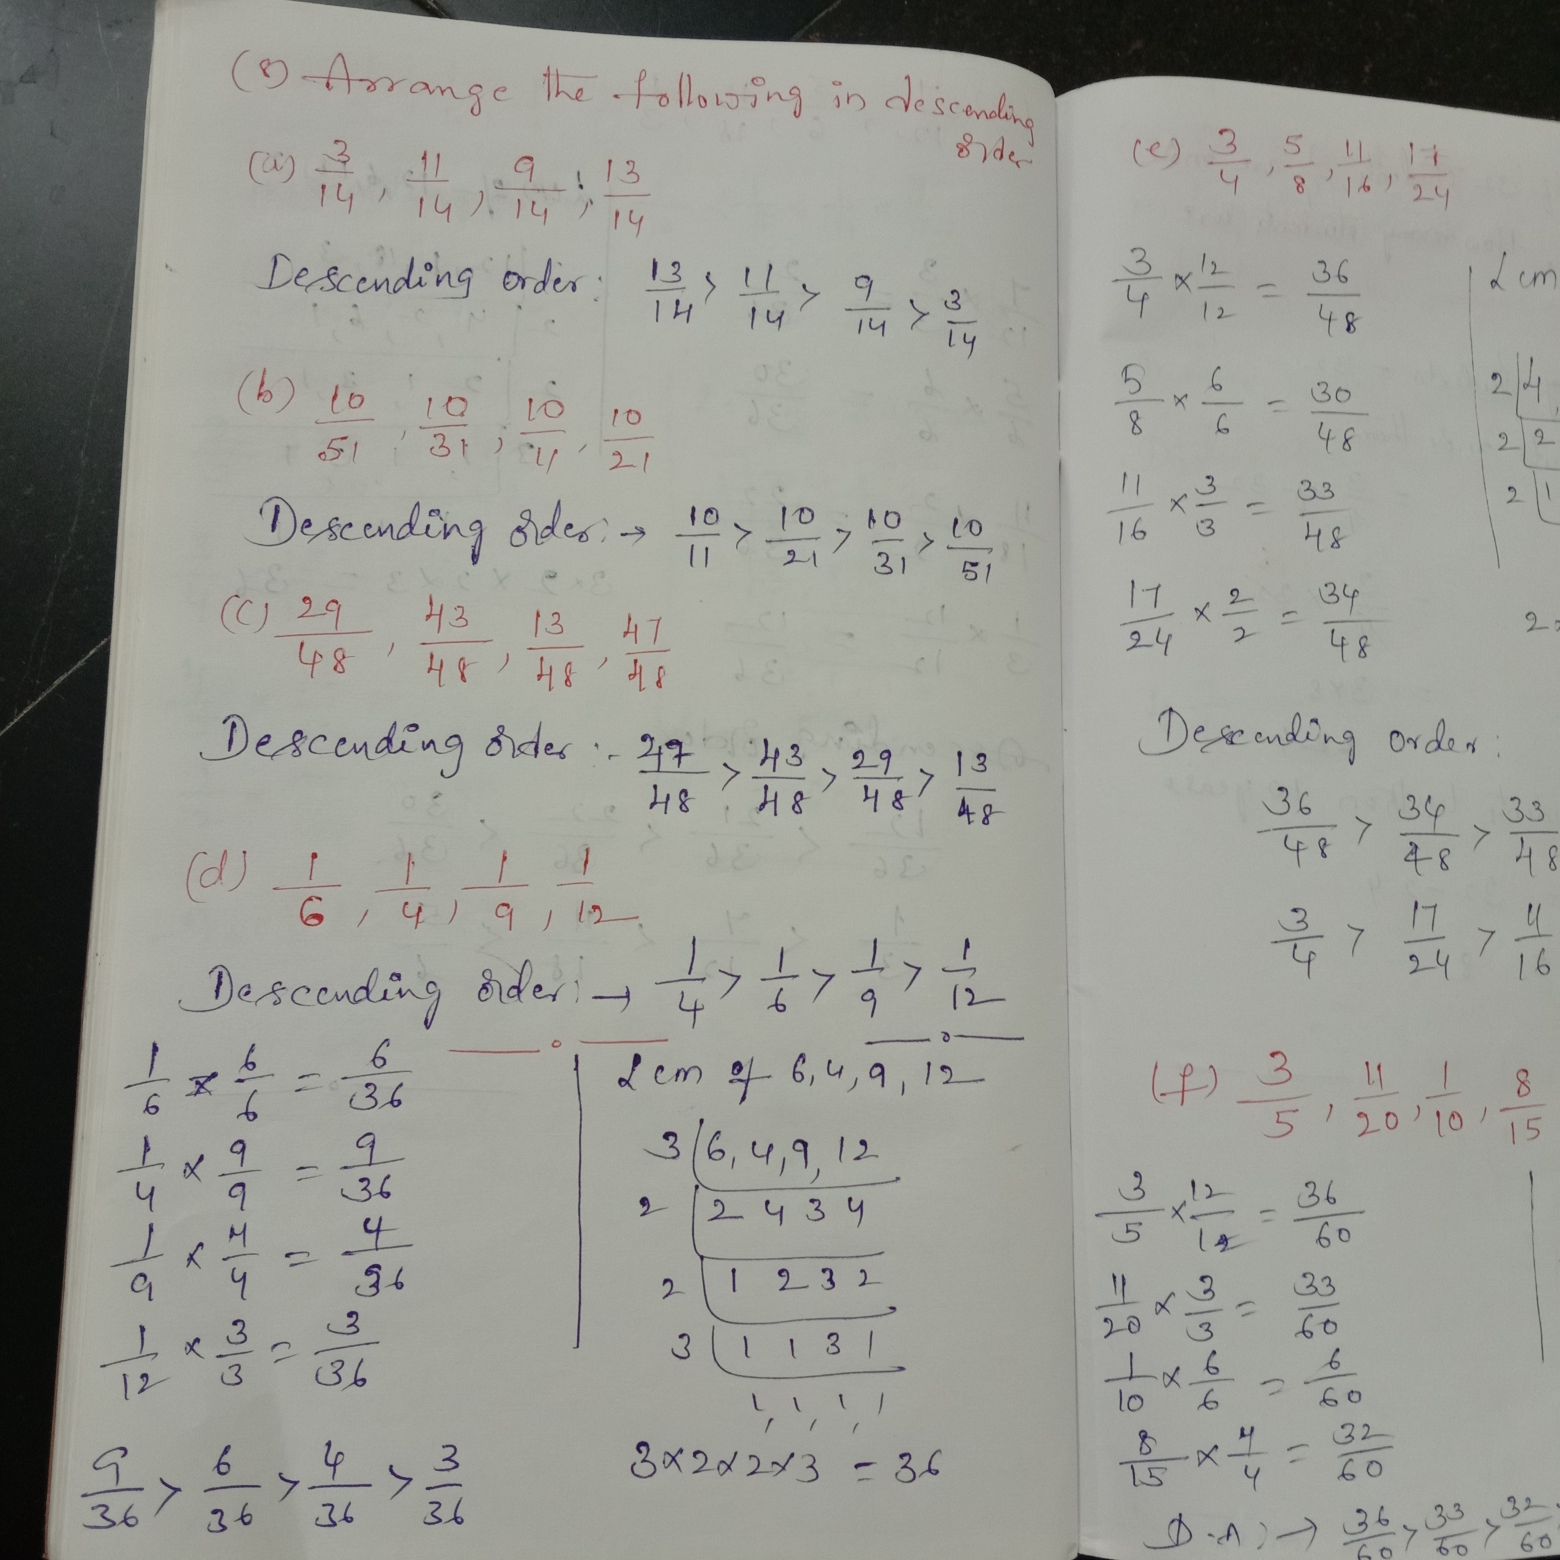 (8) Arrange the following in descending order
(a) 3/14, 11/14, 9/14, 13/14
Descending order: 13/14 > 11/14 > 9/14 > 3/14
(b) 10/51, 10/31, 10/4, 10/21
Descending order:→ 10/11 > 10/21 > 10/31 > 10/51
(c) 29/48, 43/48, 13/48, 47/48
Descending order:- 47/48 > 43/48 > 29/48 > 13/48
(d) 1/6, 1/4, 1/9, 1/12
Descending order:→ 1/4 > 1/6 > 1/9 > 1/12
1/6 × 6/6 = 6/36
1/4 × 9/9 = 9/36
1/9 × 4/4 = 4/36
1/12 × 3/3 = 3/36
9/36 > 6/36 > 4/36 > 3/36
Lcm of 6,4,9,12
3 | 6,4,9,12
2 | 2 4 3 4
2 | 1 2 3 2
3 | 1 1 3 1
1,1,1,1
3×2×2×3 = 36
(e) 3/4, 5/8, 11/16, 17/24
3/4 × 12/12 = 36/48
5/8 × 6/6 = 30/48
11/16 × 3/3 = 33/48
17/24 × 2/2 = 34/48
Lcm
2 | 4,
2 | 2
2 | 1
2
Descending order:
36/48 > 34/48 > 33/48
3/4 > 17/24 > 11/16
(f) 3/5, 11/20, 1/10, 8/15
3/5 × 12/12 = 36/60
11/20 × 3/3 = 33/60
1/10 × 6/6 = 6/60
8/15 × 4/4 = 32/60
36/60 > 33/60 > 32/60